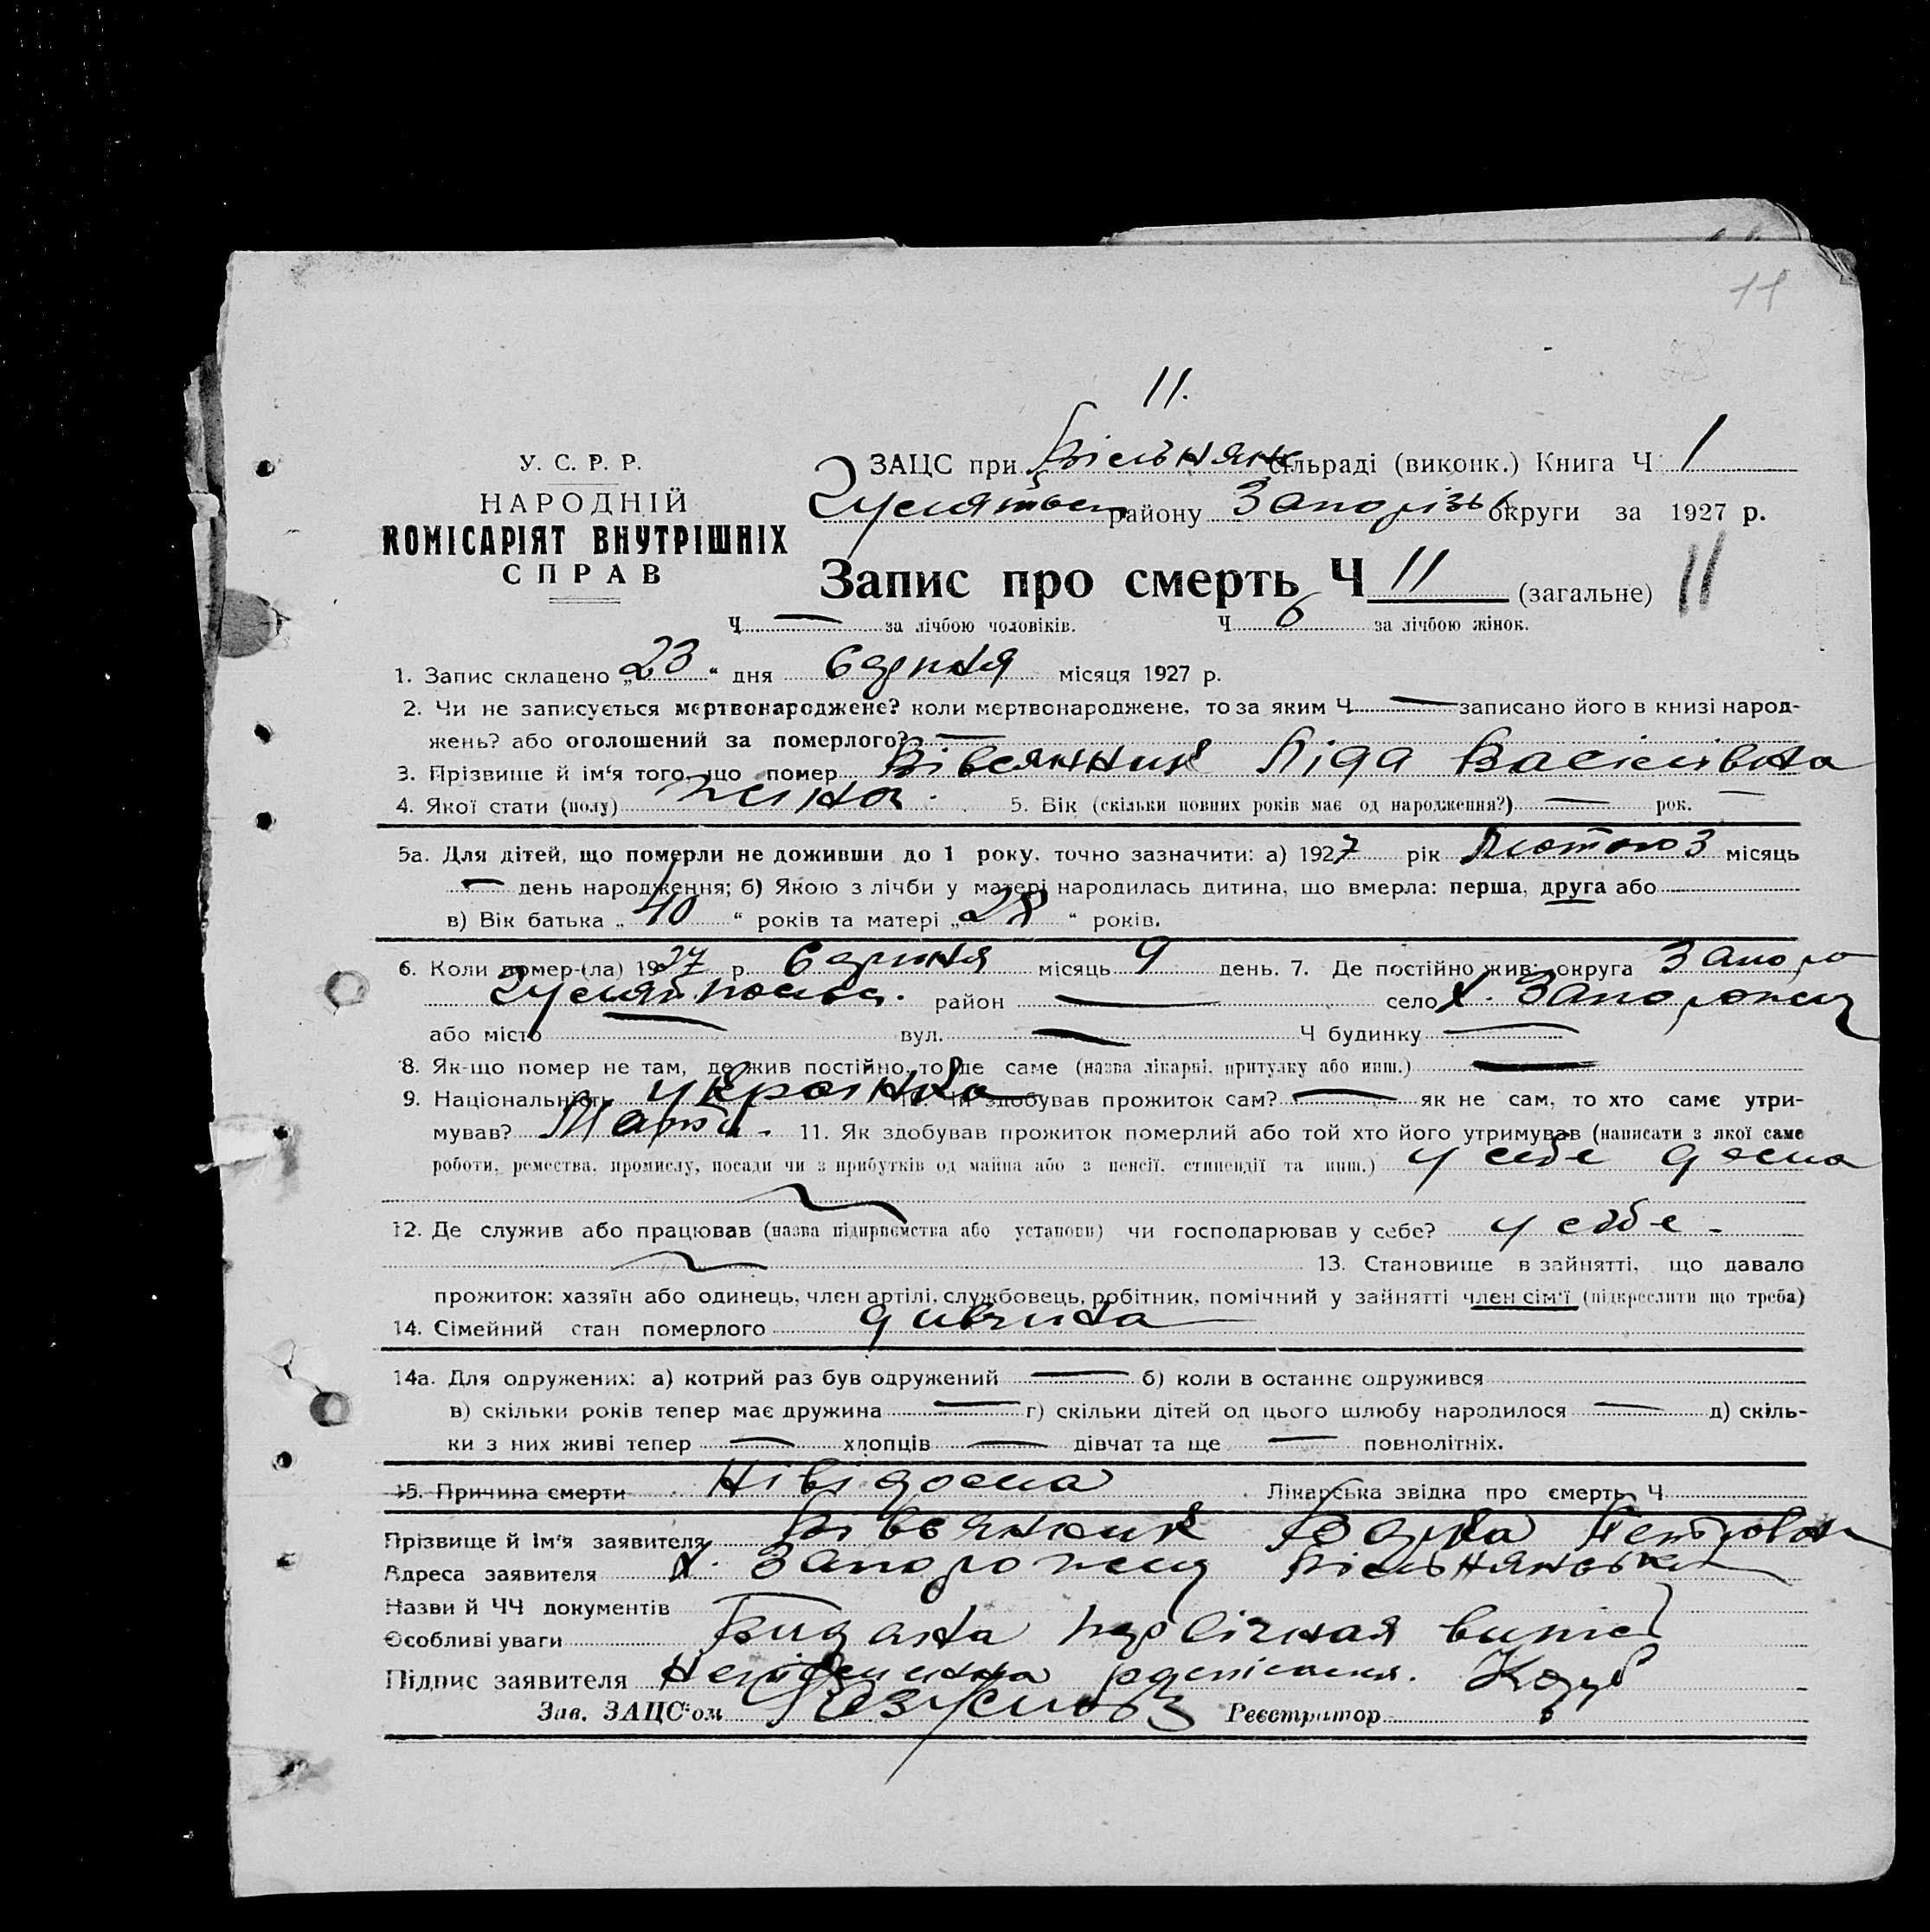 11
11.
У. С. Р. Р.
НАРОДНІЙ
КОМІСАРІЯТ ВНУТРІШНІХ
СПРАВ
ЗАЦС при Вільнянс сільраді (виконк.) Книга Ч 1
району Запорізь округи за 1927 р.
Запис про смерть Ч 11 (загальне) 11
Ч — за лічбою чоловіків. Ч 6 за лічбою жінок.
1. Запис складено „23“ дня серпня місяця 1927 р.
2. Чи не записується мертвонароджене? коли мертвонароджене, то за яким Ч — записано його в книзі народ-
жень? або оголошений за померлого? —
3. Прізвище й ім'я того, що помер Вівсянник Ліда Васілівна
4. Якої стати (полу) жіноч. 5. Вік (скільки повних років має од народження?) — рок. —
5а. Для дітей, що померли не доживши до 1 року, точно зазначити: а) 1927 рік Лютого 3 місяць
— день народження; б) Якою з лічби у матері народилась дитина, що вмерла: перша, друга або
в) Вік батька „40“ років та матері „28“ років.
6. Коли помер-(ла) 1927 р. серпня місяць 9 день. 7. Де постійно жив: округа Запоро
район — село Х. Запорожец
або місто — вул. — Ч будинку —
8. Як-що помер не там, де жив постійно, то де саме (назва лікарні, притулку або инш.) —
9. Національність українка 10. Чи здобував прожиток сам? — як не сам, то хто саме утри-
мував? Мати. 11. Як здобував прожиток померлий або той хто його утримував (написати з якої саме
роботи, ремества, промислу, посади чи з прибутків од майна або з пенсії, стипендії та инш.) у себе дома
12. Де служив або працював (назва підприємства або установи) чи господарював у себе? у себе -
13. Становище в зайнятті, що давало
прожиток: хазяїн або одинець, член артілі, службовець, робітник, помічний у зайнятті член сім'ї (підкреслити що треба)
14. Сімейний стан померлого дивчина
14а. Для одружених: а) котрий раз був одружений — б) коли в останнє одружився
в) скільки років тепер має дружина — г) скільки дітей од цього шлюбу народилося — д) скіль-
ки з них живі тепер — хлопців — дівчат та ще — повнолітніх.
15. Причина смерти Нівідома Лікарська звідка про смерть Ч
Прізвище й Ім'я заявителя Вівсянник Петровна
Адреса заявителя Х. Запорожец Вільнянської
Назви й ЧЧ документів
Особливі уваги Видана
Підпис заявителя
Зав. ЗАЦС'ом Реєстратор